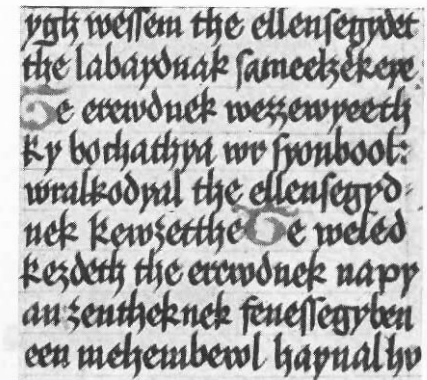 ygh weſſem the ellenſegydet
the labaydnak ſameelzekeye
Te erewdnek wezzewyeeth
ky bochathya wr ſyonbool:
wralkodyal the ellenſegyd⸗
nek kewzetthe Te weled
kezdeth the erewdnek napy
an zentheknek feneſſegyben
een mehembewl haynal hv